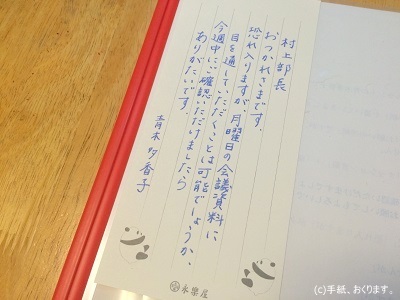 村上部長
おつかれさまです。
恐れ入りますが月曜日の会議資料に
目を通していただくことは可能でしょうか。
今週中にご確認いただけましたら
ありがたいです。
青木多香子
永樂屋
(c)手紙、おくります。